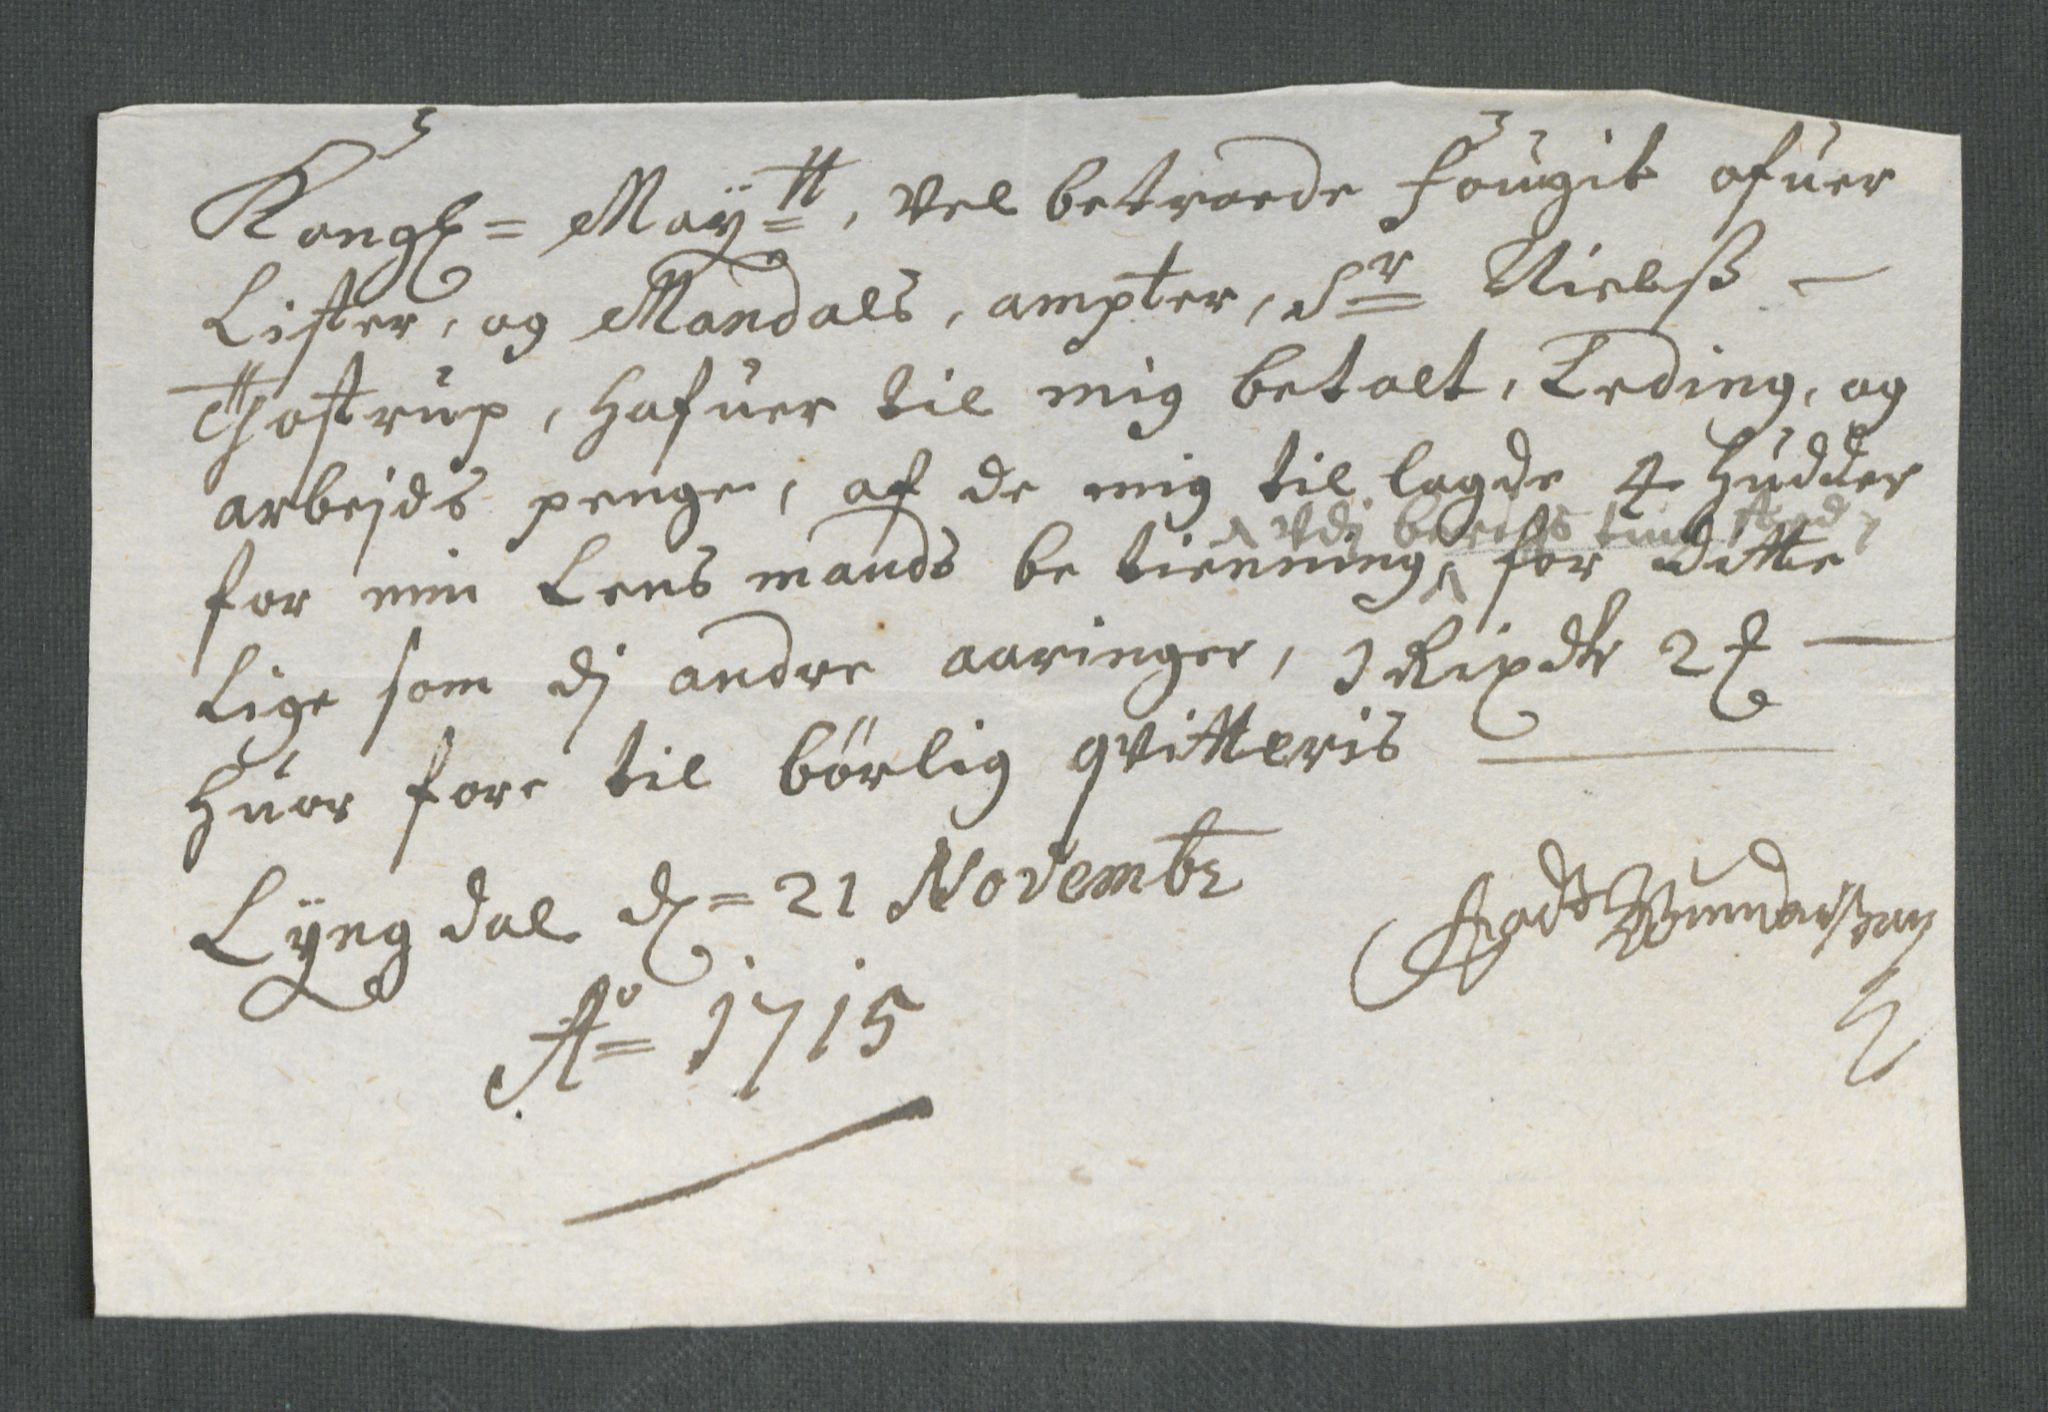 Kongl= Maÿtt, Vel betroede Fougit ofuer
Lister, og Mandals, ampter, Sr Nielß –
Tostrup, hafuer til mig betalt, Leding, og
arbejds penge, af de mig til lagde 4 hudder
Vdj
for min Lens mands be tienning, for ditte
Lige som dj andre aaringer, 3 Rixdlr 2
huor fore til börlig qvitteris
Lÿngdal d= 21 Novembr
Ao= 1715